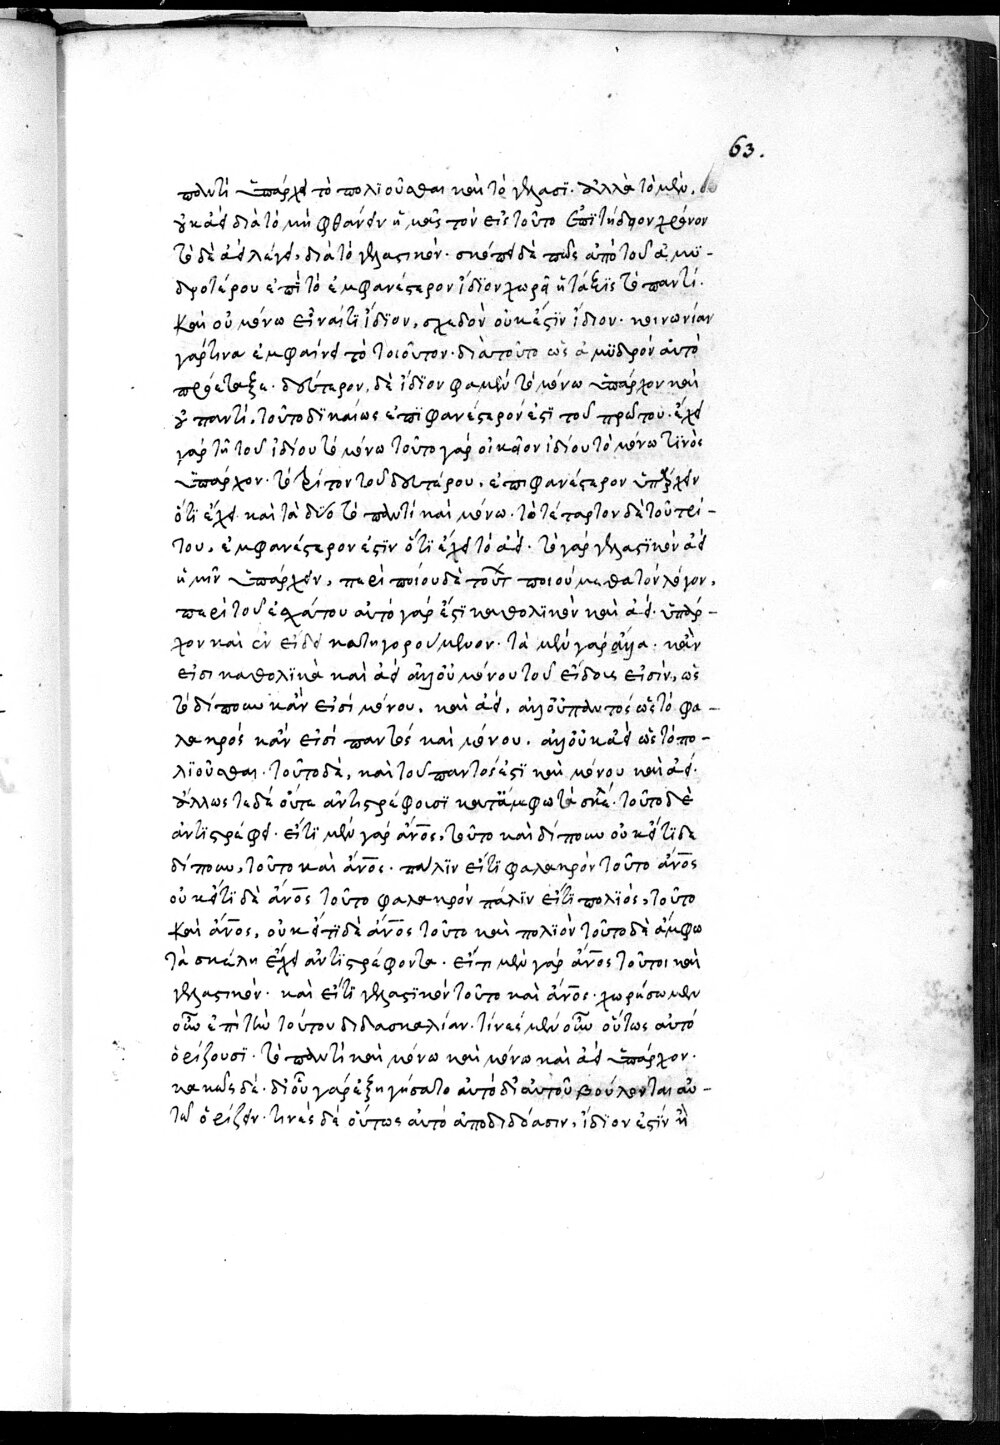 63.
παντὶ ὑπάρχει τὸ πολιοῦσθαι καὶ τὸ γελαστι. ἀλλὰ τὸ μὲν,
οὐκ ἀεὶ διὰ τὸ μὴ φθάνειν ἡμᾶς τὸν εἰς τοῦτο ἐπιτήδειον χρόνον
τὸ δὲ ἀεὶ λέγει, διὰ τὸ γελαστικόν. σκόπει δὲ πῶς ἀπὸ τοῦ ἀμυ-
δροτέρου ἐπὶ τὸ ἐμφανέστερον ἴδιον χωρεῖ ἡ τάξις τὸ παντί.
καὶ οὐ μόνω εἶναί τι ἴδιον, σχεδὸν οὐκ ἔστιν ἴδιον. κοινωνίαν
γάρ τινα ἐμφαίνει τὸ τοιοῦτον. διὰ τοῦτο ὡς ἀμυδρὸν αὐτὸ
προέταξε. δεύτερον, δὲ ἴδιον φαμὲν τὸ μόνω ὑπάρχον καὶ
οὐ παντί, τοῦτο δικαίως ἐπιφανέστερόν ἐστι τοῦ πρώτου. ἔχει
γάρ τι τοῦ ἰδίου τὸ μόνω τοῦτο γάρ οἰκεῖον ἰδίου τὸ μόνω τινὸς
ὑπάρχον. τὸ τρίτον τοῦ δευτέρου, ἐπιφανέστερον ὑπάρχειν
ὅτι ἔχει καὶ τὰ δύο τὸ παντὶ καὶ μόνω. τὸ τέταρτον δὲ τοῦ τρί-
του, ἐμφανέστερον ἐστιν ὅτι ἔχει τὸ ἀεί. τὸ γάρ γελαστικὸν ἀεὶ
ἡμῖν ὑπάρχειν, περὶ ποίου δὲ τούτων ποιούμεθα τὸν λόγον,
περὶ τοῦ ἐσχάτου αὐτὸ γάρ ἐστι καθολικὸν καὶ ἀεὶ. ὑπάρ-
χον καὶ ἐν εἴδει κατηγορούμενον. τὰ μὲν γὰρ ἄλλα. κἂν
εἰσι καθολικὰ καὶ ἀεὶ ἀλλ' οὐ μόνου τοῦ εἴδους εἰσὶν, ὡς
τὸ δίπουν κἂν εἰσί μόνου, καὶ ἀεί, ἀλλ' οὐ παντὸς ὡς τὸ φα-
λακρός κἂν εἰσί παντός καὶ μόνου. ἀλλ' οὐκ ἀεὶ ὡς τὸ πο-
λιοῦσθαι. τοῦτο δὲ, καὶ τοῦ παντός ἐστι καὶ μόνου καὶ ἀεί.
ἄλλως τε δὲ οὔτε ἀντιστρέφουσι κατ' ἄμφω τὰ σκέλη. τοῦτο δὲ
ἀντιστρέφει. εἴ τι μὲν γὰρ ἄνος, τοῦτο καὶ δίπουν οὐκ εἴ τι δὲ
δίπουν, τοῦτο καὶ ἄνος. πάλιν εἴ τι φαλακρόν τοῦτο ἄνος
οὐκ εἴ τι δὲ ἄνος τοῦτο φαλακρὸν πάλιν εἴ τι πολιός, τοῦτο
καὶ ἄνος, οὐκ εἴ τι δὲ ἄνος τοῦτο καὶ πολιὸν τοῦτο δὲ ἄμφω
τὰ σκέλη ἔχει ἀντιστρέφοντα. εἴ τι μὲν γὰρ ἄνος τοῦτο καὶ
γελαστικόν. καὶ εἴ τι γελαστικὸν τοῦτο καὶ ἄνος. χωρήσωμεν
οὖν ἐπὶ τὴν τούτου διδασκαλίαν. τινὲς μὲν οὖν οὕτως αὐτό
ὁρίζουσι. τὸ παντὶ καὶ μόνω καὶ μόνω καὶ ἀεὶ ὑπάρχον.
κακῶς δέ. δι' οὗ γὰρ ἐξηγήσατο αὐτὸ δι' αὐτοῦ βούλονται αὐ-
τῶ ὁρίζειν. τινὲς δὲ οὕτως αὐτὸ ἀποδιδόασιν, ἴδιον ἐστίν ἢ